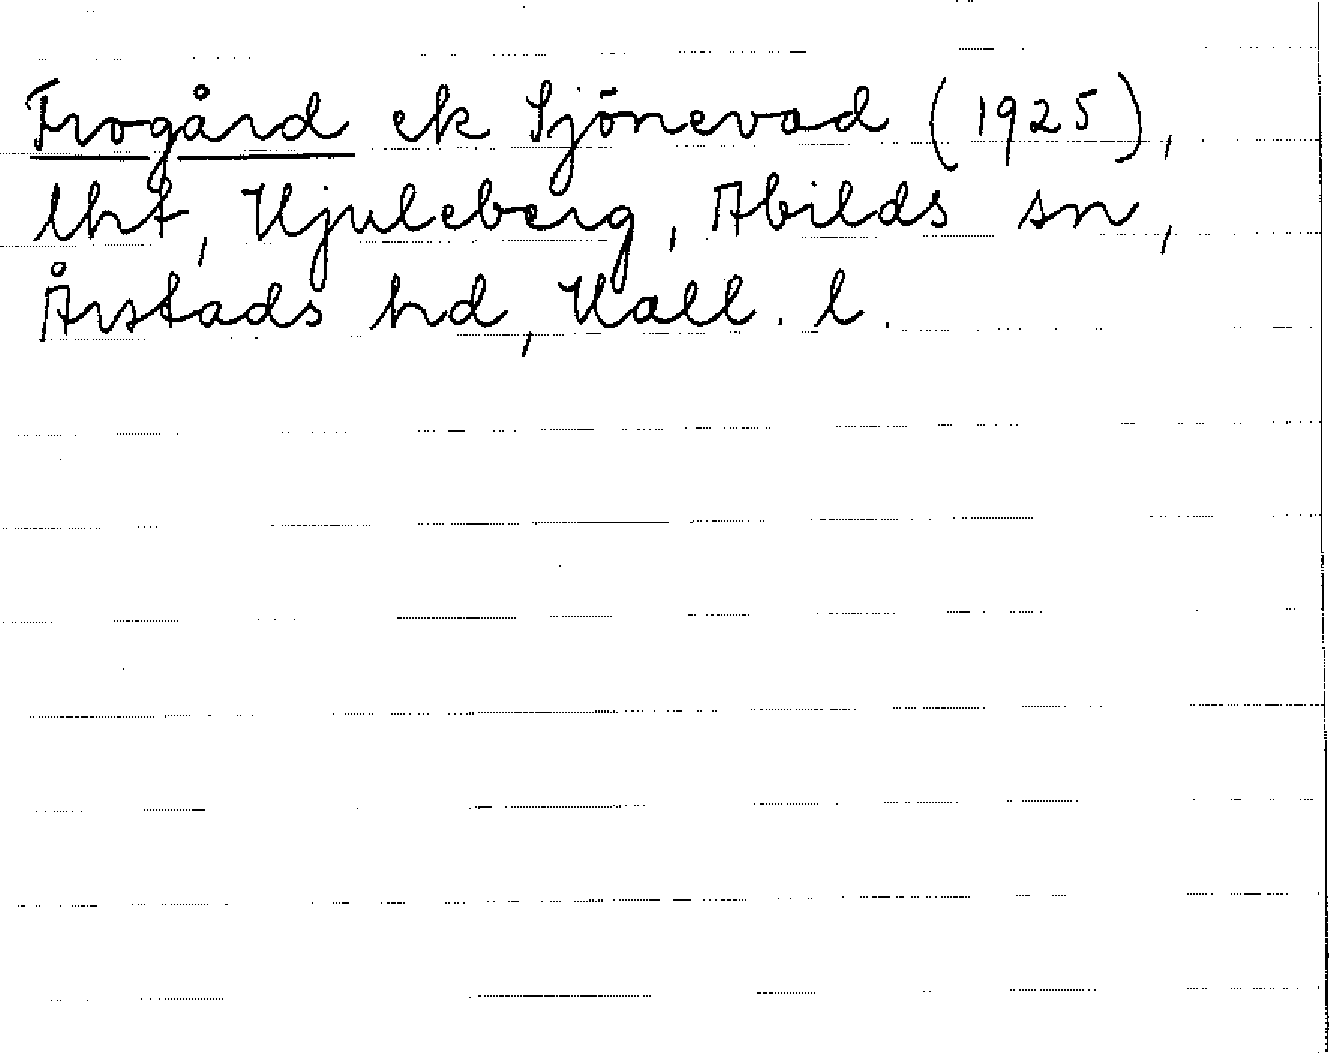 Frogård ek Sjönevad (1925),
lht, Hjuleberg, Abilds sn,
Årstads hd, Hall. l.